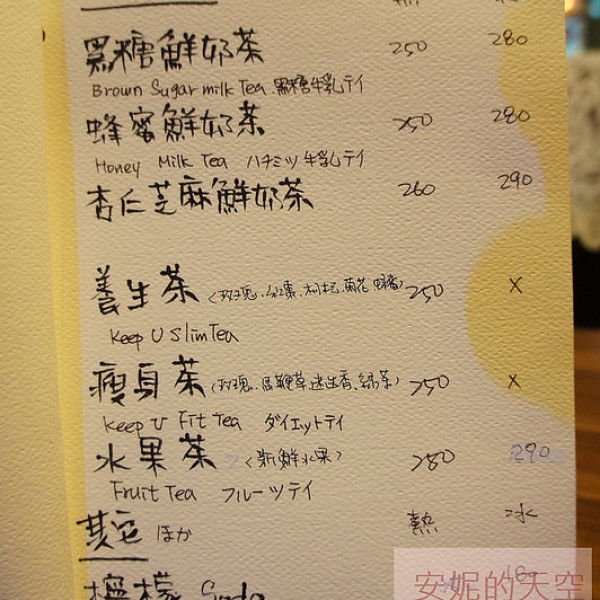 黑糖鮮奶茶 250 280
Brown Sugar milk Tea 黑糖牛乳テイ
蜂蜜鮮奶茶 250 280
Honey Milk Tea ハチミツ牛乳テイ
杏仁芝麻鮮奶茶 260 290
養生茶 (玫瑰.紅棗.枸杞.菊花.蜂蜜) 250 X
Keep U Slim Tea
瘦身茶 (玫瑰.馬鞭草.迷迭香.綠茶) 250 X
Keep U Fit Tea ダイエットテイ
水果茶 (新鮮水果) 280 290
Fruit Tea フルーツテイ
其它 ほか 熱 冰
檸檬 Soda 180
安妮的天空